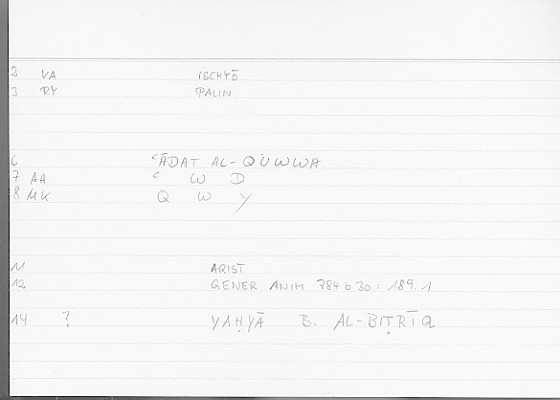 2 VA ISCHYŌ
3 RY PALIN
6 ʿĀDAT AL-QUWWA
7 AA ʿ W D
8 MK Q W Y
11 ARIST
12 GENER ANIM 784 b 30 : 189.1
14 ? YAḤYĀ B. AL-BIṬRĪQ